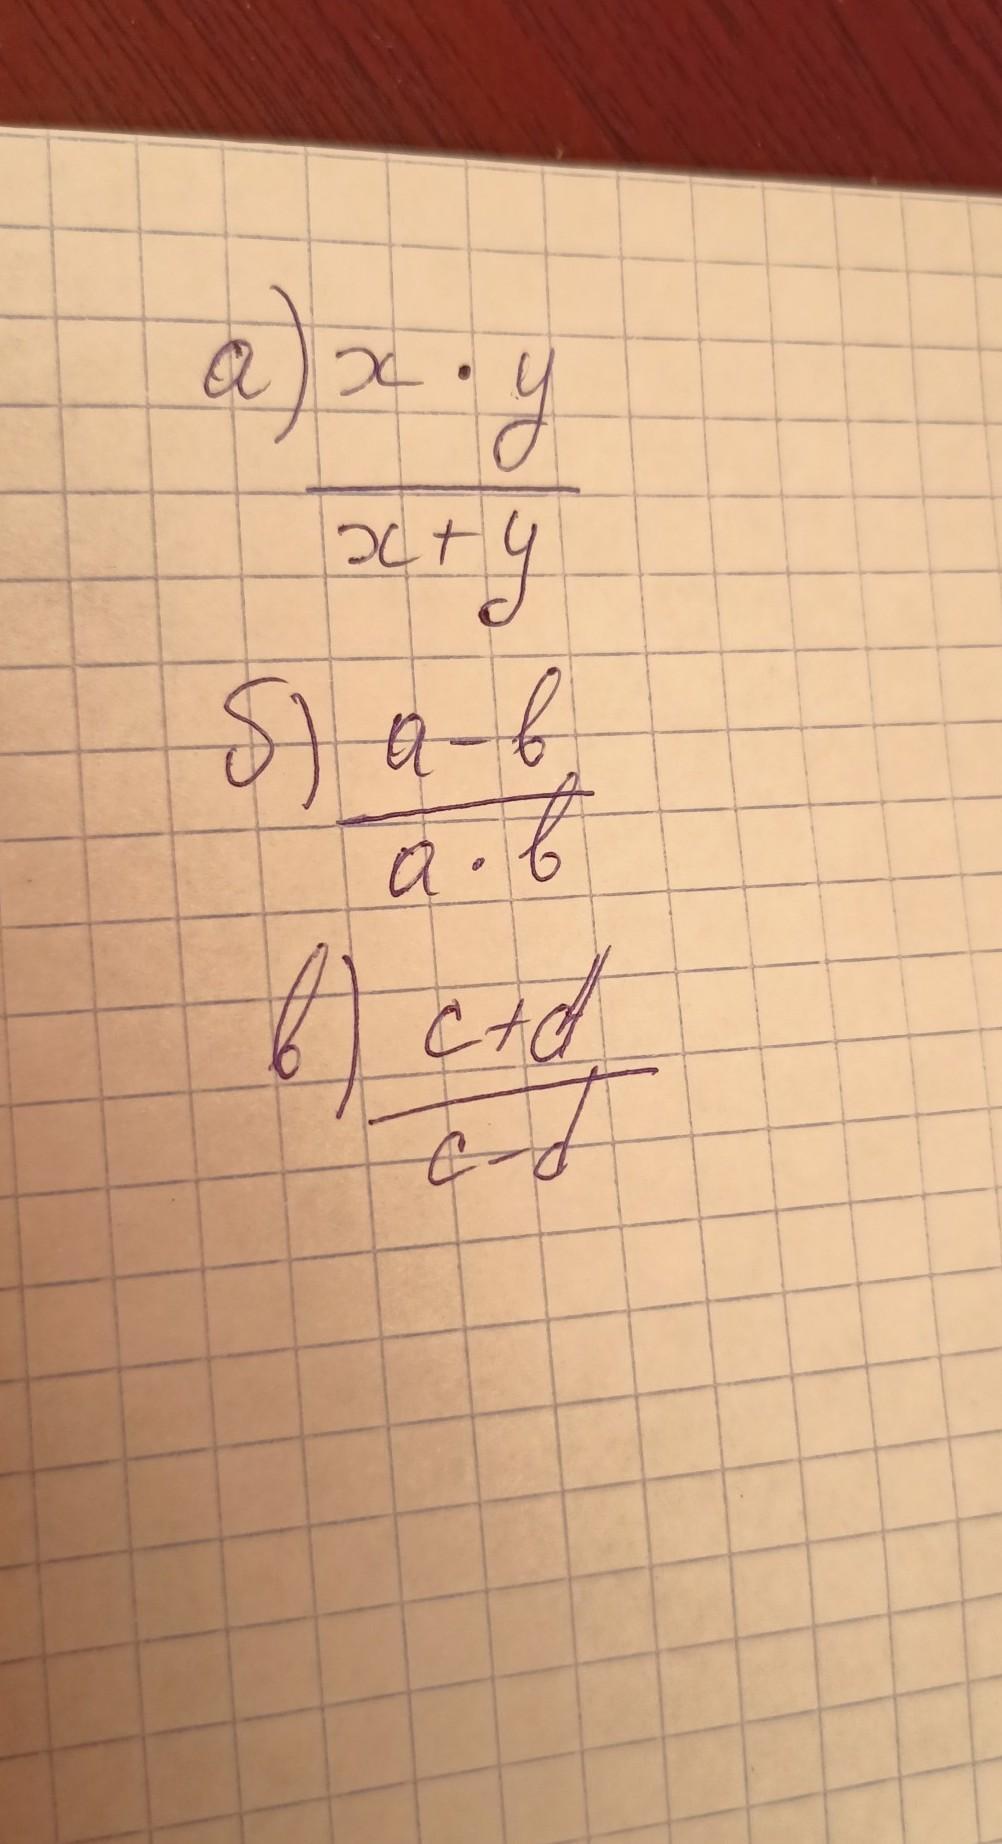 а) x · y
x + y
б) a - b
a · b
в) c + d
c - d